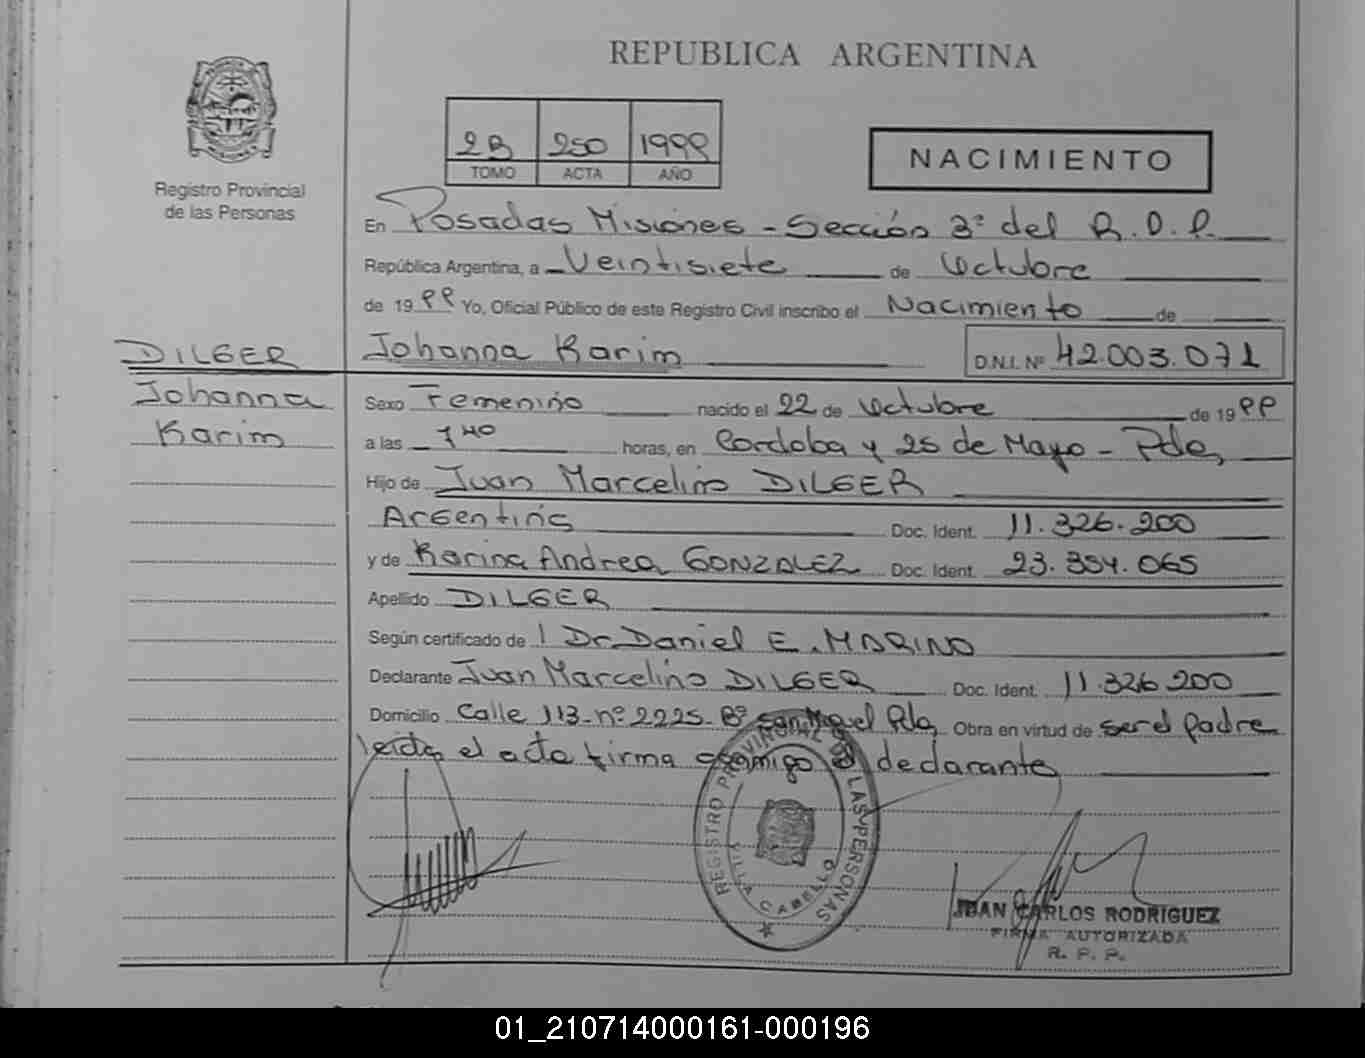 REPUBLICA ARGENTINA
2B 250 1999
TOMO ACTA AÑO
NACIMIENTO
Registro Provincial
de las Personas
En Posadas Misiones - Sección 3ª del R.P.P.
República Argentina, a Veintisiete de Octubre
de 1999 Yo, Oficial Público de este Registro Civil inscribo el Nacimiento de
Johanna Karim D.N.I. Nº 42.003.071
DILGER
Johanna
Karim
Sexo Femenino nacido el 22 de Octubre de 1999
a las 7 40 horas, en Cordoba y 25 de Mayo - Pdas,
Hijo de Juan Marcelino DILGER
Argentino Doc. Ident. 11.326.200
y de Karina Andrea GONZALEZ Doc. Ident. 23.354.065
Apellido DILGER
Según certificado de Dr. Daniel E. MARINO
Declarante Juan Marcelino DILGER Doc. Ident. 11.326.200
Domicilio Calle 113-nº 2225-Bº San Miguel Pdas, Obra en virtud de ser el padre
leída el acta firma conmigo el declarante
REGISTRO PROVINCIAL DE LAS PERSONAS
VILLA CABELLO
JUAN CARLOS RODRIGUEZ
FIRMA AUTORIZADA
R. P. P.
01_210714000161-000196